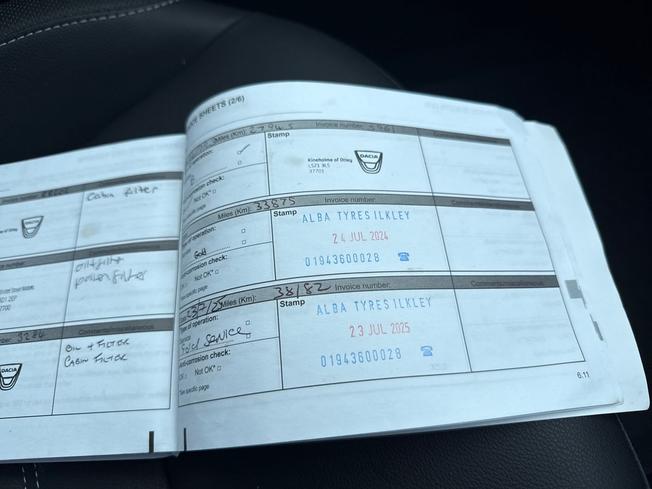 Cabin filter
oil filter
pollen filter
Comments/miscellaneous
OIL + FILTER
CABIN FILTER
DACIA
SHEETS (2/6)
Miles (Km):
Invoice number:
Stamp
Kineholme of Otley
LS21 3LS
37701
DACIA
operation:
check:
Not OK*
specific page
Miles (Km): 33875
Invoice number:
Comments/miscellaneous
Stamp
ALBA TYRES ILKLEY
24 JUL 2024
01943600028
of operation:
Gold
corrosion check:
Not OK*
specific page
Miles (Km): 38182
Invoice number:
Comments/miscellaneous
Stamp
ALBA TYRES ILKLEY
23 JUL 2025
01943600028
Type of operation:
Gold Service
Anti-corrosion check:
OK
Not OK*
*See specific page
6.11